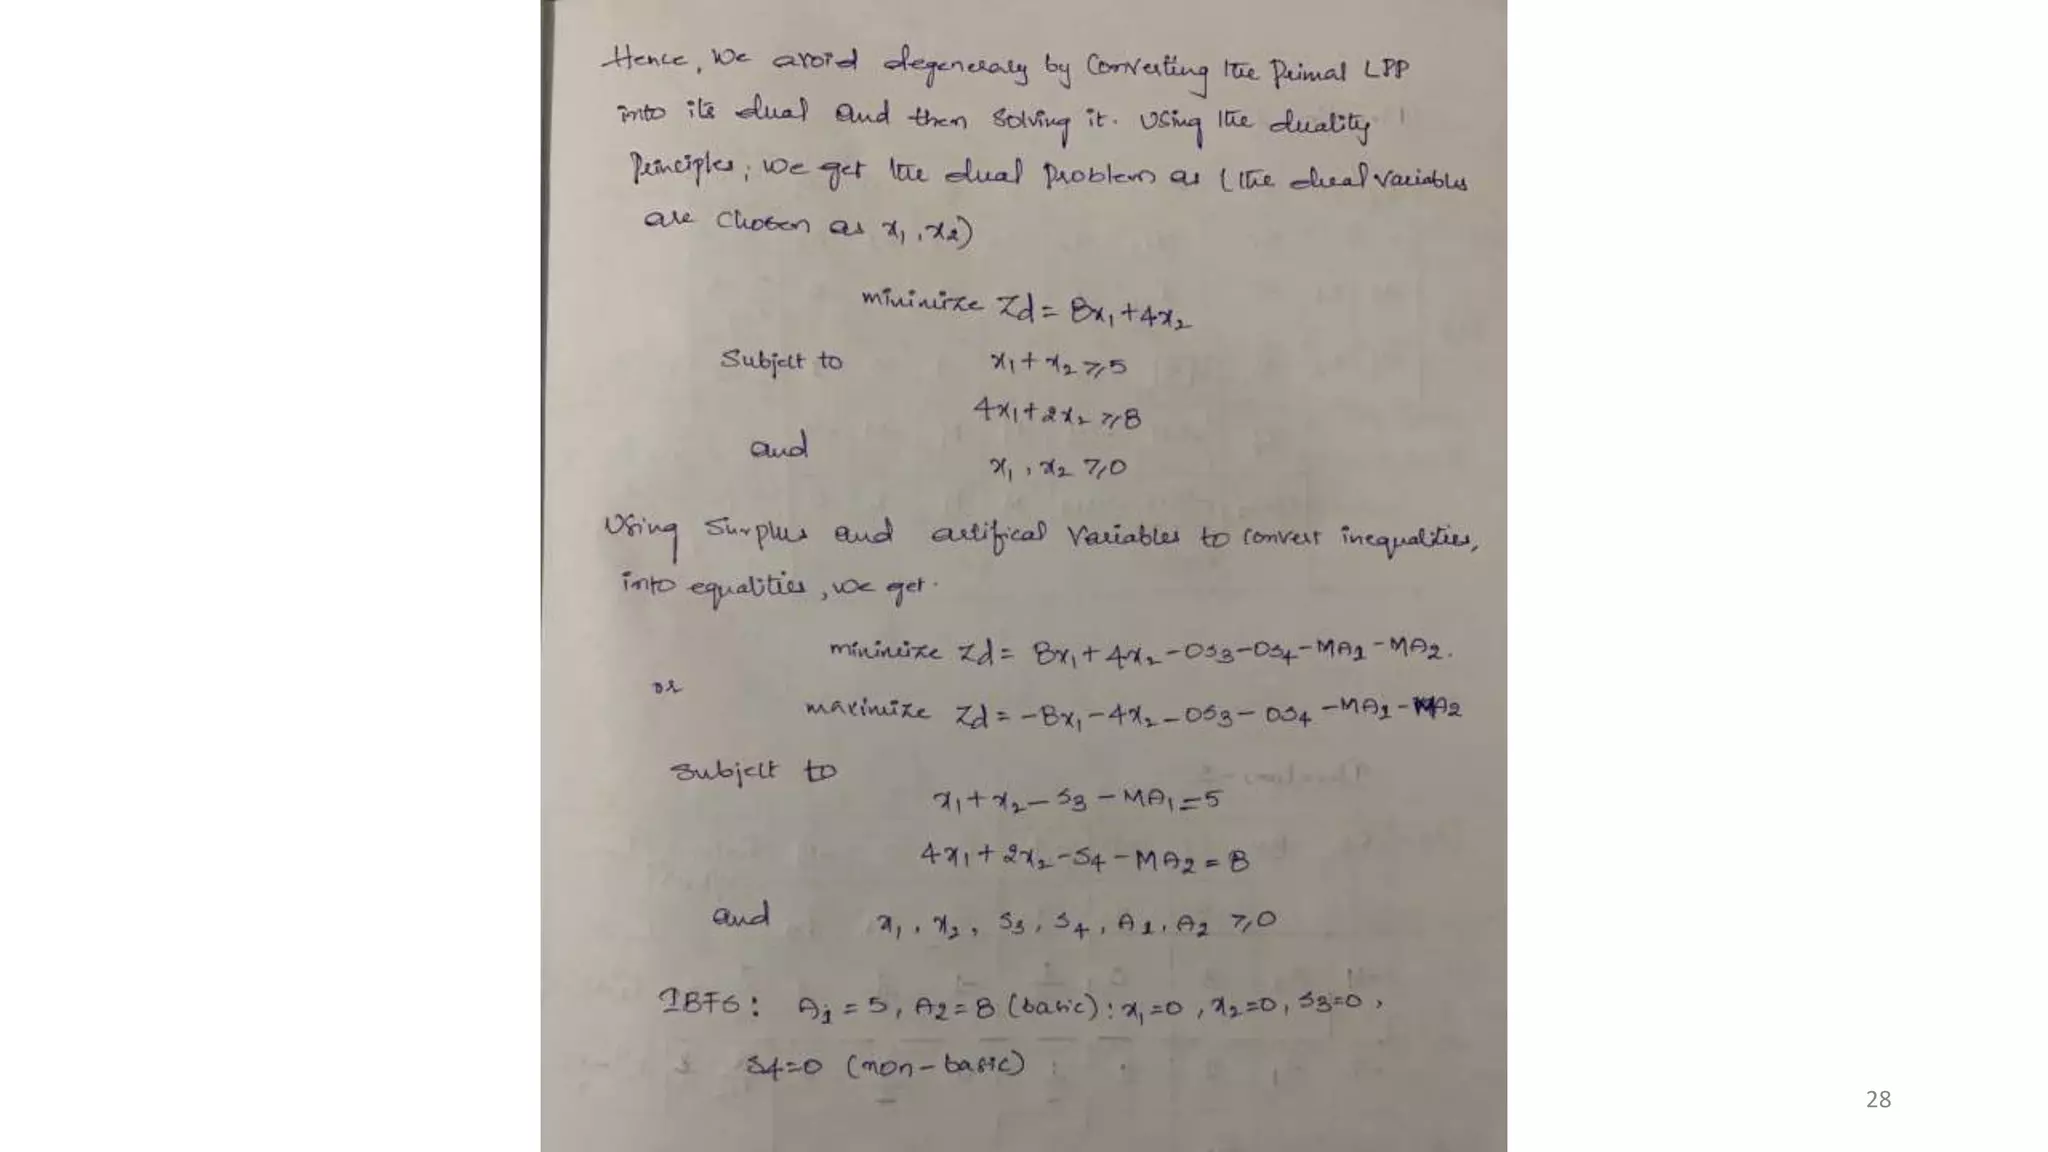 Hence, we avoid degeneracy by Converting the Primal LPP
into its dual and then solving it. Using the duality
Principles, we get the dual Problem as (the dual variables
are chosen as x₁, x₂)
minimize Zd = 8x₁ + 4x₂
Subject to x₁ + x₂ ≥ 5
4x₁ + 2x₂ ≥ 8
and
x₁, x₂ ≥ 0
Using Surplus and artifical Variables to convert inequalities,
into equalities, we get.
minimize Zd = 8x₁ + 4x₂ - 0S₃ - 0S₄ - MA₁ - MA₂.
or
maximize Zd = -8x₁ - 4x₂ - 0S₃ - 0S₄ - MA₁ - MA₂
Subject to
x₁ + x₂ - S₃ - MA₁ = 5
4x₁ + 2x₂ - S₄ - MA₂ = 8
and x₁, x₂, S₃, S₄, A₁, A₂ ≥ 0
IBFS: A₁ = 5, A₂ = 8 (basic): x₁ = 0, x₂ = 0, S₃ = 0,
S₄ = 0 (non-basic)
28